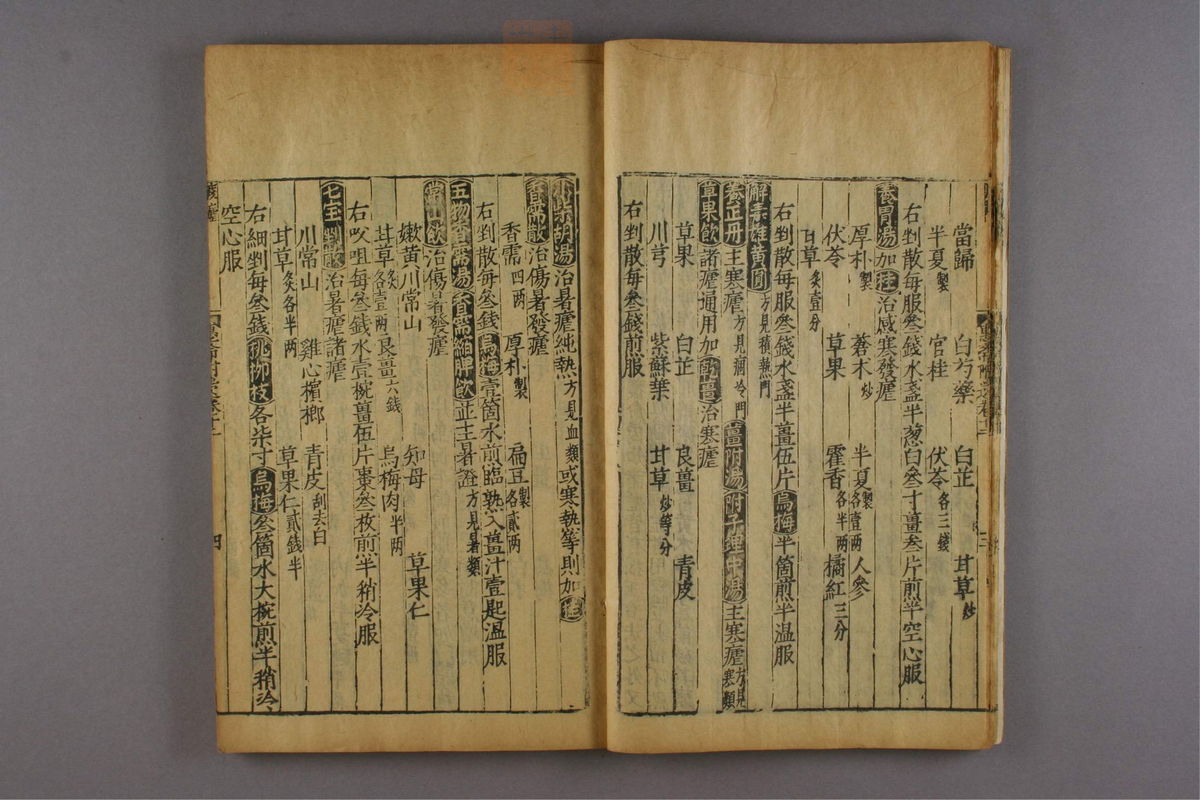 當歸 白芍藥 白芷 甘草炒
半夏製 官桂 伏苓各三錢
右剉散每服叄錢水盞半葱白叄寸薑叄片煎半空心服
養胃湯加桂治感寒發瘧
厚朴製 蒼术炒 半夏製各壹两 人參
伏苓 草果 霍香各半两 橘紅三分
甘草炙壹分
右剉散每服叄錢水盞半薑伍片烏梅半箇煎半温服
解毒雄黃圓方見積熱門
養正丹主寒瘧方見痼冷門薑附湯附子理中湯主寒瘧方見寒類
草果飲諸瘧通用加乾薑治寒瘧
草果 白芷 良薑 青皮
川芎 紫蘇葉 甘草炒等分
右剉散每叄錢煎服
小柴胡湯治暑瘧純熱方見血類或寒熱等則加桂
香薷散治傷暑發瘧
香薷四两 厚朴製 扁豆製各貳两
右剉散每叄錢烏梅壹箇水煎臨熟入薑汁壹匙温服
五物香薷湯香薷縮脾飲並主暑證方見暑類
常山飲治傷暑發瘧
嫩黃川常山 知母 草果仁
甘草炙各壹两 良薑六錢 烏梅肉半两
右㕮咀每叄錢水壹椀薑伍片棗叄枚煎半稍冷服
七宝剉散治暑瘧諸瘧
川常山 雞心檳榔 青皮刮去白
甘草炙各半两 草果仁貳錢半
右細剉每叄錢桃柳枝各柒寸烏梅叄箇水大椀煎半稍冷
空心服
四